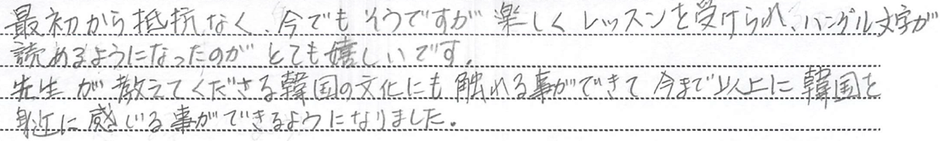 最初から抵抗なく、今でもそうですが楽しくレッスンを受けられ、ハングル文字が
読めるようになったのがとても嬉しいです。
先生が教えてくださる韓国の文化にも触れる事ができて今まで以上に韓国を
身近に感じる事ができるようになりました。